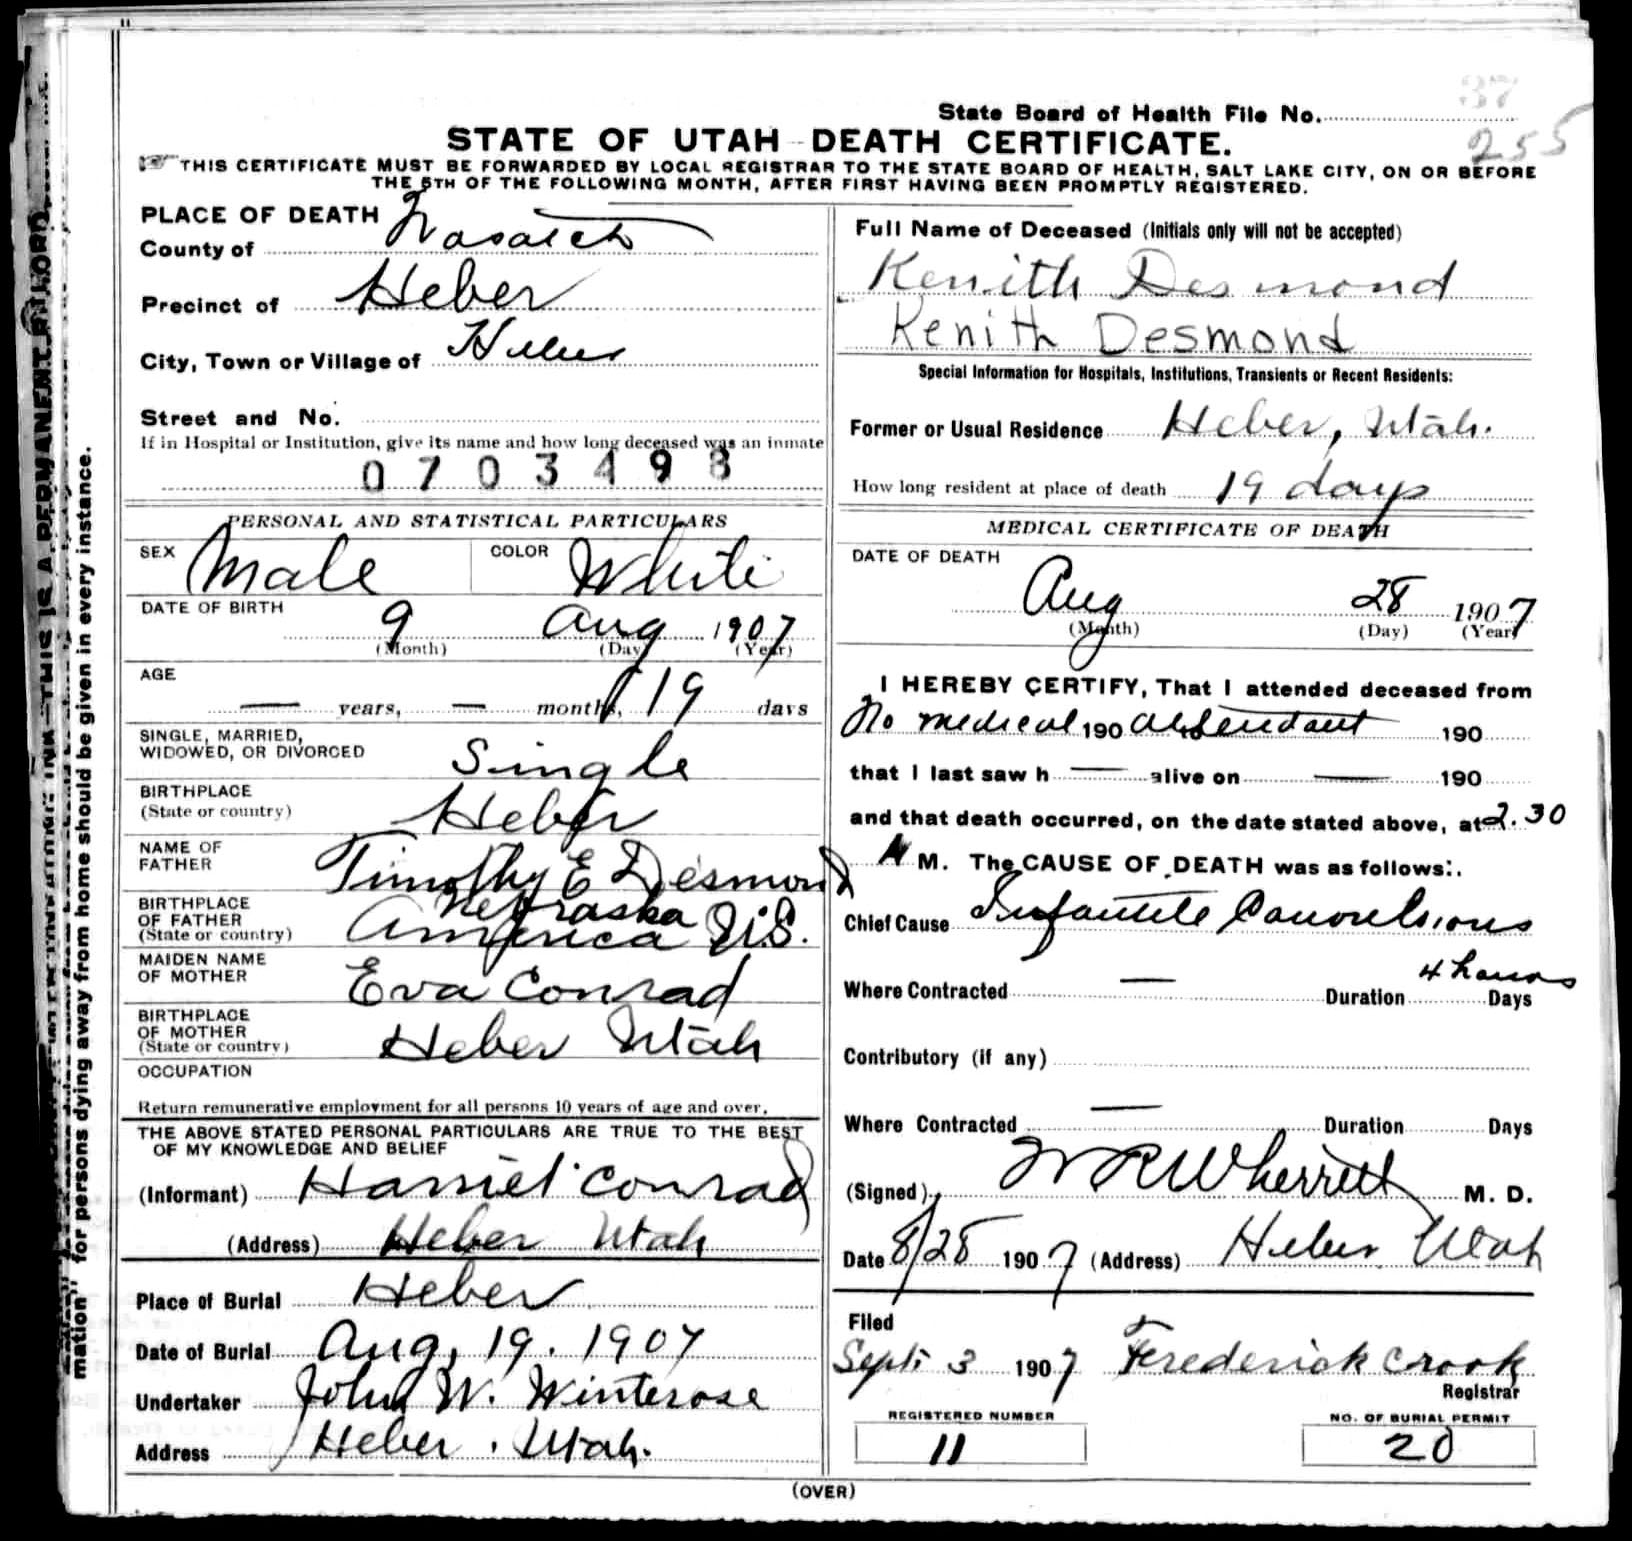 37
State Board of Health File No.
255
STATE OF UTAH - DEATH CERTIFICATE.
☞ THIS CERTIFICATE MUST BE FORWARDED BY LOCAL REGISTRAR TO THE STATE BOARD OF HEALTH, SALT LAKE CITY, ON OR BEFORE
THE 5TH OF THE FOLLOWING MONTH, AFTER FIRST HAVING BEEN PROMPTLY REGISTERED.
PLACE OF DEATH
County of Wasatch
Precinct of Heber
City, Town or Village of Heber
Street and No.
If in Hospital or Institution, give its name and how long deceased was an inmate
0703498
PERSONAL AND STATISTICAL PARTICULARS
SEX Male COLOR White
DATE OF BIRTH
9 Aug 1907
(Month) (Day) (Year)
AGE
— years, — months, 19 days
SINGLE, MARRIED,
WIDOWED, OR DIVORCED Single
BIRTHPLACE
(State or country) Heber
NAME OF
FATHER Timothy E Desmond
BIRTHPLACE
OF FATHER Nebraska
(State or country) America U.S.
MAIDEN NAME
OF MOTHER Eva Conrad
BIRTHPLACE
OF MOTHER
(State or country) Heber Utah
OCCUPATION
Return remunerative employment for all persons 10 years of age and over.
THE ABOVE STATED PERSONAL PARTICULARS ARE TRUE TO THE BEST
OF MY KNOWLEDGE AND BELIEF
(Informant) Harriet Conrad
(Address) Heber Utah
Place of Burial Heber
Date of Burial Aug, 19. 1907
Undertaker John W. Winterose
Address Heber. Utah.
Full Name of Deceased (Initials only will not be accepted)
Kenith Desmond
Kenith Desmond
Special Information for Hospitals, Institutions, Transients or Recent Residents:
Former or Usual Residence Heber, Utah.
How long resident at place of death 19 days
MEDICAL CERTIFICATE OF DEATH
DATE OF DEATH
Aug 28 1907
(Month) (Day) (Year)
I HEREBY CERTIFY, That I attended deceased from
No medical 190 attendant 190
that I last saw h — alive on — 190
and that death occurred, on the date stated above, at 2.30
A M. The CAUSE OF DEATH was as follows:
Chief Cause Infantile Convulsions
Where Contracted — Duration 4 hours Days
Contributory (if any)
Where Contracted — Duration Days
(Signed) W R Wherritt M. D.
Date 8/28 1907 (Address) Heber Utah
Filed
Sept. 3 1907 Frederick Crook
Registrar
REGISTERED NUMBER
11
NO. OF BURIAL PERMIT
20
(OVER)
THIS IS A PERMANENT RECORD
mation" for persons dying away from home should be given in every instance.